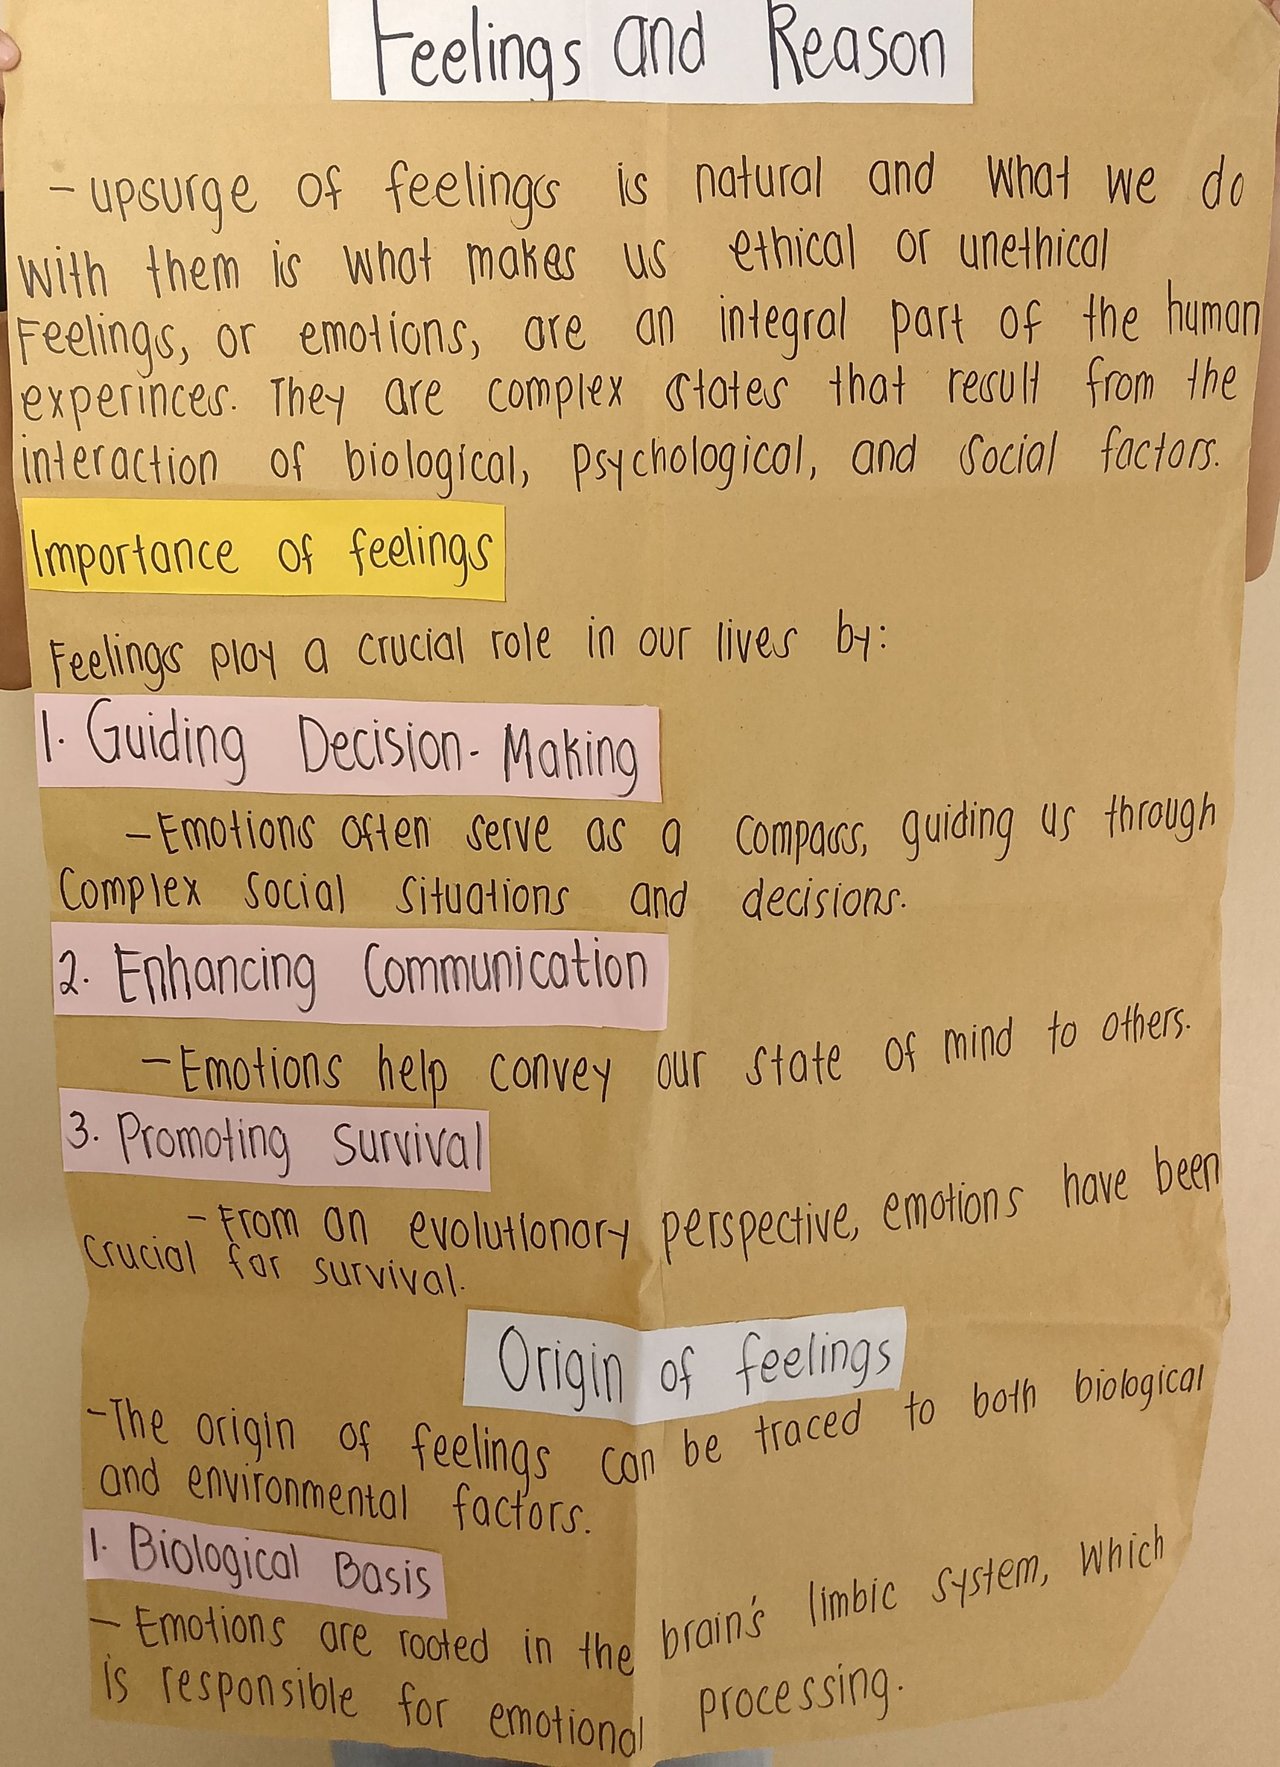 Feelings and Reason
- upsurge of feelings is natural and what we do
with them is what makes us ethical or unethical
Feelings, or emotions, are an integral part of the human
experinces. They are complex states that result from the
interaction of biological, psychological, and social factors.
Importance of feelings
Feelings play a crucial role in our lives by:
1. Guiding Decision-Making
- Emotions often serve as a compass, guiding us through
complex social situations and decisions.
2. Enhancing Communication
- Emotions help convey our state of mind to others.
3. Promoting Survival
- From an evolutionary perspective, emotions have been
crucial for survival.
Origin of feelings
- The origin of feelings can be traced to both biological
and environmental factors.
1. Biological Basis
- Emotions are rooted in the brain's limbic system, which
is responsible for emotional processing.